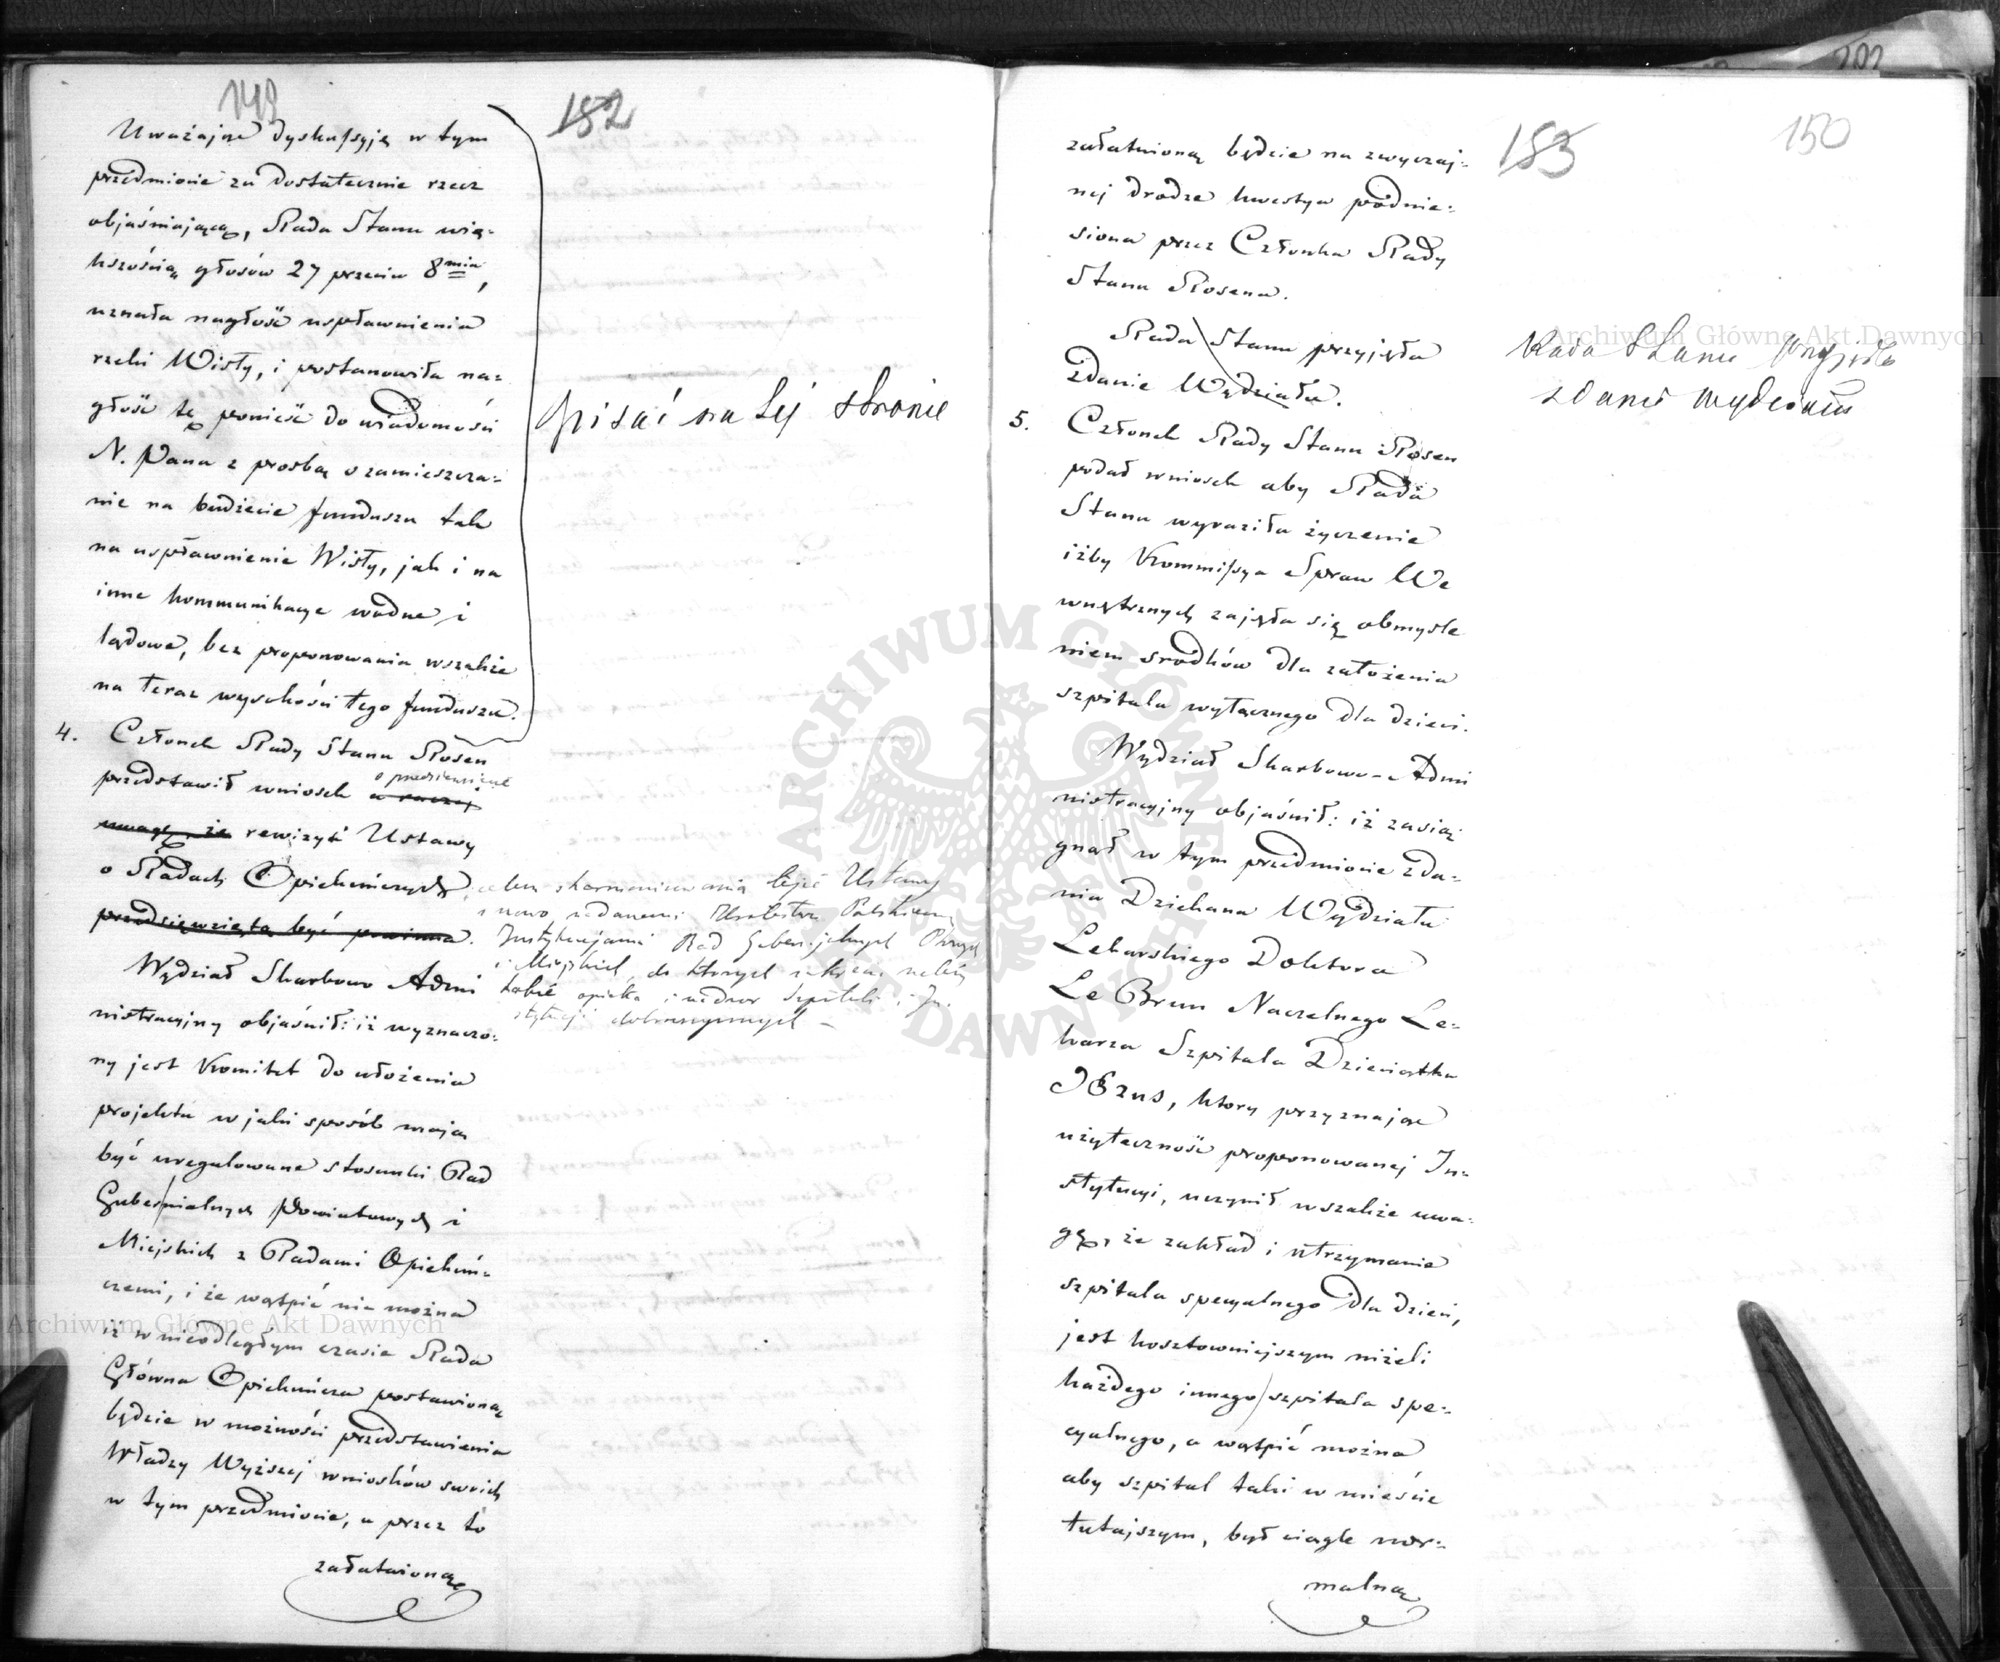 149
182
Uważając dyskussyję w tym
przedmiocie za dostatecznie rzecz
objaśniającą, Rada Stanu wię-
kszością głosów 27 przeciw 8min,
uznała nagłość uspławnienia
rzeki Wisły, i postanowiła na-
głość tę ponieść do wiadomości
N. Pana z prośbą o zamieszcza-
nie na budżecie funduszu tak
na uspławnienie Wisły, jak i na
inne kommunikacye wodne i
lądowe, bez proponowania wszakże
na teraz wysokości tego funduszu.
pisać na tej stronie
4. Członek Rady Stanu Rosen
przedstawił wniosek a raczej o przedsięwzięcie
uwagę, że rewizyi Ustawy
o Radach Opiekuńczych,
przedsięwziętą być powinna.
celem skarmonizowania tejże Ustawy
z nowo nadanemi Królestwu Polskiemu
Instytucjami Rad Gubernijalnych Powiat.
i Miejskich, do których zakresu należy
także opieka i nadzór Szpitali i In-
stytucji dobroczynnych –
Wydział Skarbowo Admi
nistracyjny objaśnił: iż wyznaczo-
ny jest Komitet do ułożenia
projektu w jaki sposób mają
być uregulowane stosunki Rad
Gubernialnych Powiatowych i
Miejskich z Radami Opiekuń-
czemi, i że wątpić nie można
iż w nieodległym czasie Rada
Główna Opiekuńcza postawioną
będzie w możności przedstawienia
Władzy Wyższej wniosków swoich
w tym przedmiocie, a przez to
załatwioną
202
183
150
załatwioną będzie na zwyczaj-
nej drodze kwestya podnie-
siona przez Członka Rady
Stanu Rosena.
Rada Stanu przyjęła
zdanie Wydziału.
Rada Stanu przyjęła
zdanie Wydziału
5. Członek Rady Stanu Rosen
podał wniosek aby Rada
Stanu wyraziła życzenie
iżby Kommissya Spraw We
wnętrznych zajęła się obmyśle
niem srodków dla założenia
szpitala wyłącznego dla dzieci.
Wydział Skarbowo-Admi
nistracyjny objaśnił: iż zasią-
gnął w tym przedmiocie zda-
nia Dziekana Wydziału
Lekarskiego Doktora
Le Brun Naczelnego Le-
karza Szpitala Dzieciątka
JEzus, ktory przyznając
użyteczność proponowanej In-
stytucyi, uczynił wszakże uwa-
gę, że zakład i utrzymanie
szpitala specyalnego dla dzieci,
jest kosztowniejszym niżeli
każdego innego szpitala spe-
cyalnego, a wątpić można
aby szpital taki w mieście
tutajszym, był ciągle nor-
malną
Archiwum Główne Akt Dawnych
Archiwum Główne Akt Dawnych
ARCHIWUM GŁÓWNE AKT DAWNYCH